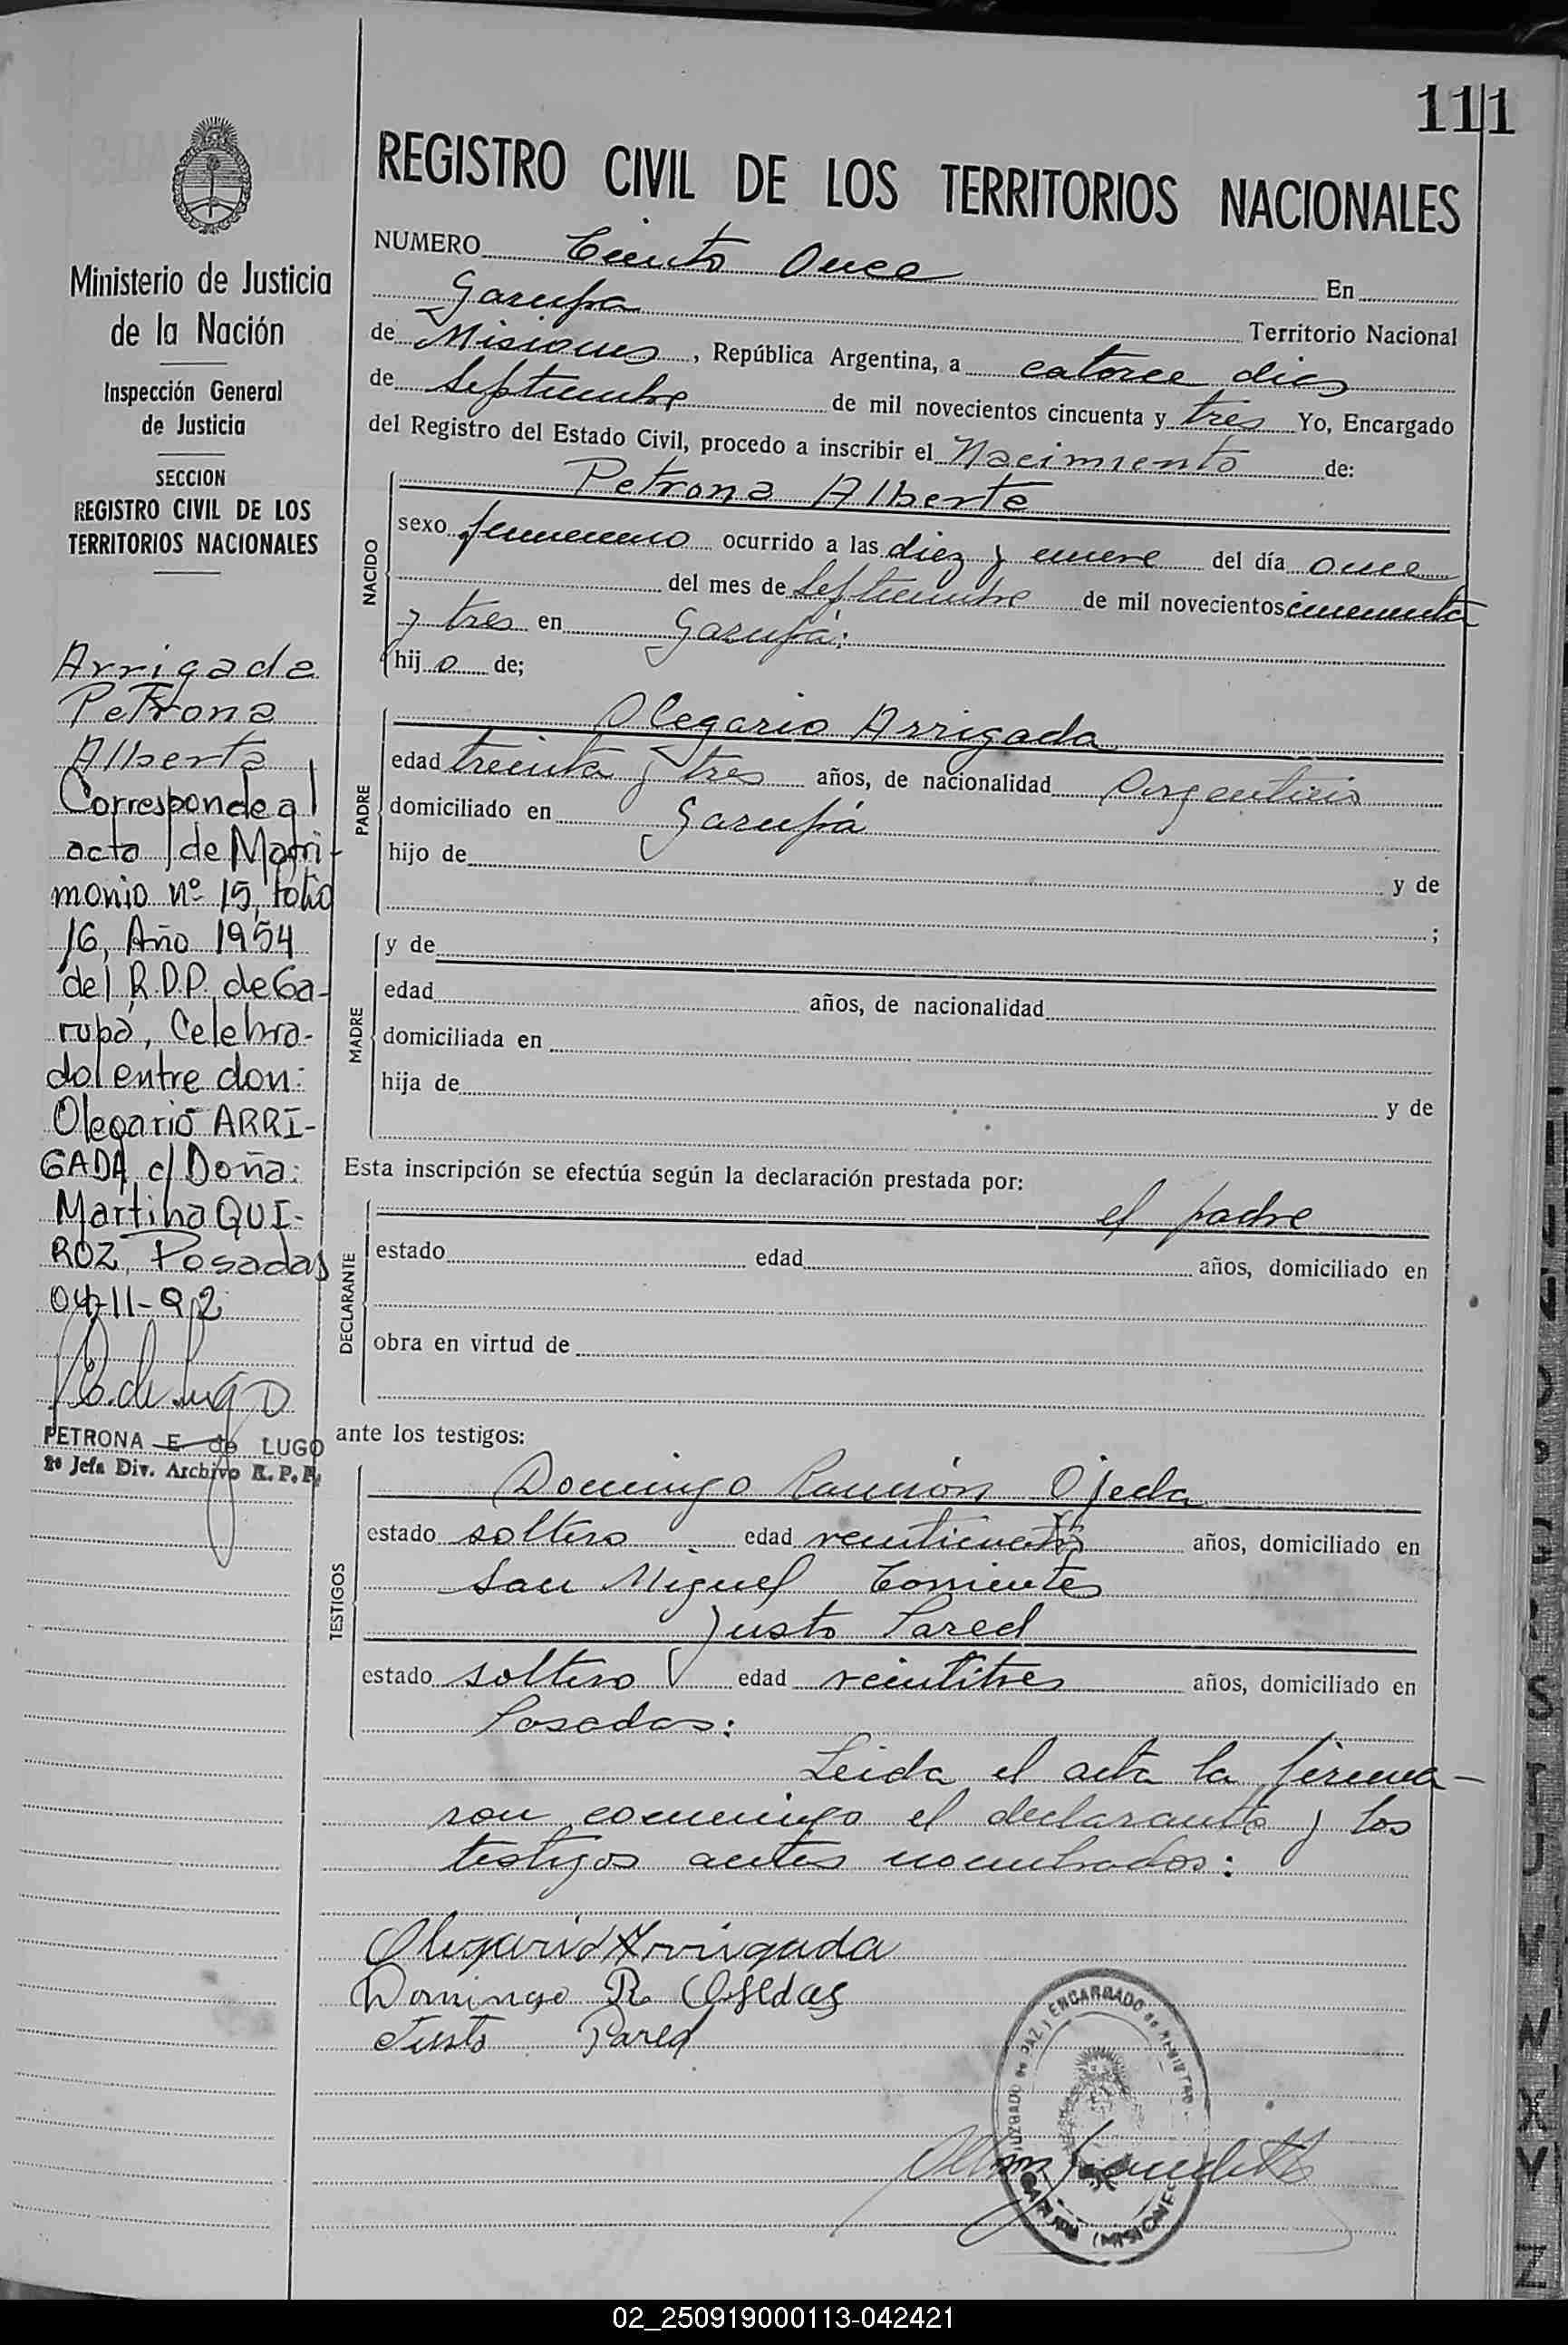 111
REGISTRO CIVIL DE LOS TERRITORIOS NACIONALES
Ministerio de Justicia
de la Nación
Inspección General
de Justicia
SECCION
REGISTRO CIVIL DE LOS
TERRITORIOS NACIONALES
Arrigada
Petrona
Alberta
Corresponde al
acta de Matri-
monio nº 15, folio
16, Año 1954
del R.D.P. de Ga-
rupá, Celebra-
do entre don:
Olegario ARRI-
GADA c/ Doña:
Martina QUI-
ROZ, Posadas
04-11-92
PETRONA E. de LUGO
2º Jefa Div. Archivo R.P.P.
NUMERO Ciento Once En
Garupa Territorio Nacional
de Misiones, República Argentina, a catorce dias
de Septiembre de mil novecientos cincuenta y tres Yo, Encargado
del Registro del Estado Civil, procedo a inscribir el Nacimiento de:
Petrona Alberta
NACIDO
sexo femenino ocurrido a las diez y nueve del día once
del mes de Septiembre de mil novecientos cincuenta
y tres en Garupá:
hij a de;
PADRE
Olegario Arrigada
edad treinta y tres años, de nacionalidad Argentino
domiciliado en Garupá
hijo de y de
;
MADRE
y de
edad años, de nacionalidad
domiciliada en
hija de y de
Esta inscripción se efectúa según la declaración prestada por:
DECLARANTE
el padre
estado edad años, domiciliado en
obra en virtud de
ante los testigos:
TESTIGOS
Domingo Ramión Ojeda
estado soltero edad veinticuatro años, domiciliado en
San Miguel Corrientes
Justo Pared
estado soltero edad veintitres años, domiciliado en
Posadas:
Leida el acta la firma-
ron conmigo el declarante y los
testigos antes nombrados:
Olegario Arrigada
Domingo R. Ojedas
Justo Pared
JUZGADO DE PAZ Y ENCARGADO de REGISTRO
GARUPA (MISIONES)
02_250919000113-042421